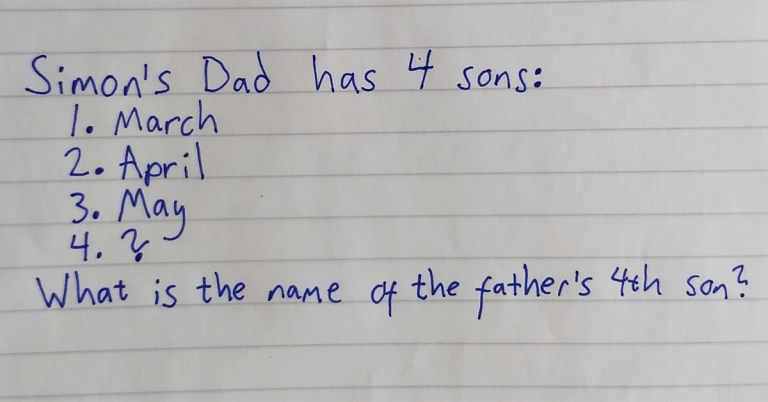 Simon's Dad has 4 sons:
1. March
2. April
3. May
4. ?
What is the name of the father's 4th son?